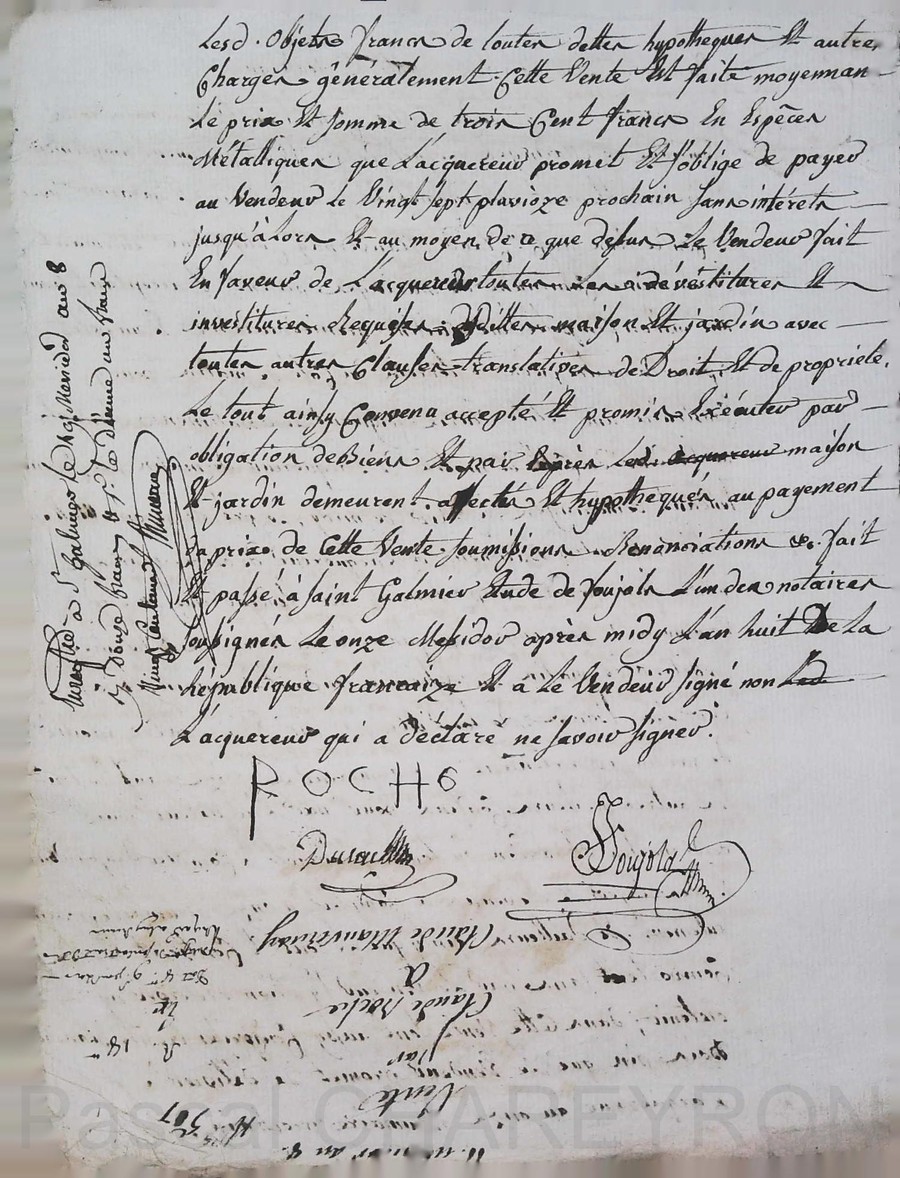 Lesd. objets francs de toutes dettes hypotheques Et autres
Charges généralement. Cette Vente Est faite moyennan-
Le prix Et somme de trois Cent francs En Espèces
Métalliques que L'acquereur promet Et s'oblige de payer
au Vendeur Le Vingt sept pluvioze prochain sans intérets
jusqu'alors Et au moyen de ce que dessus Le Vendeur fait
En faveur de L'acquereur toutes Les dévéstitures Et
investitures Requises desdittes maison Et jardin avec
toutes autres Clauses translatives de Droit Et de propriété.
Le tout ainsy Convenu accepté Et promis Exécuter par
obligation de Biens Et par Exprès Led. acquereur maison
Et jardin demeurent affectés Et hypothequés au payement
du prix de Cette Vente. soumissions Renonciations &c. fait
Et passé à saint Galmier Etude de Soujols L'un des notaires
soussignés Le onze Messidor après midy L'an huit De La
République francaize Et a Le Vendeur signé non Led
L'acquereur qui a déclaré ne savoir signer.
ROCHE
Soujols
Enregistré à St Galmier Le Messidor an 8
Claude Mainvernay
A
Claude Roche
par
Vente
No. 307
11. an 8.
Pascal CHAREYRON